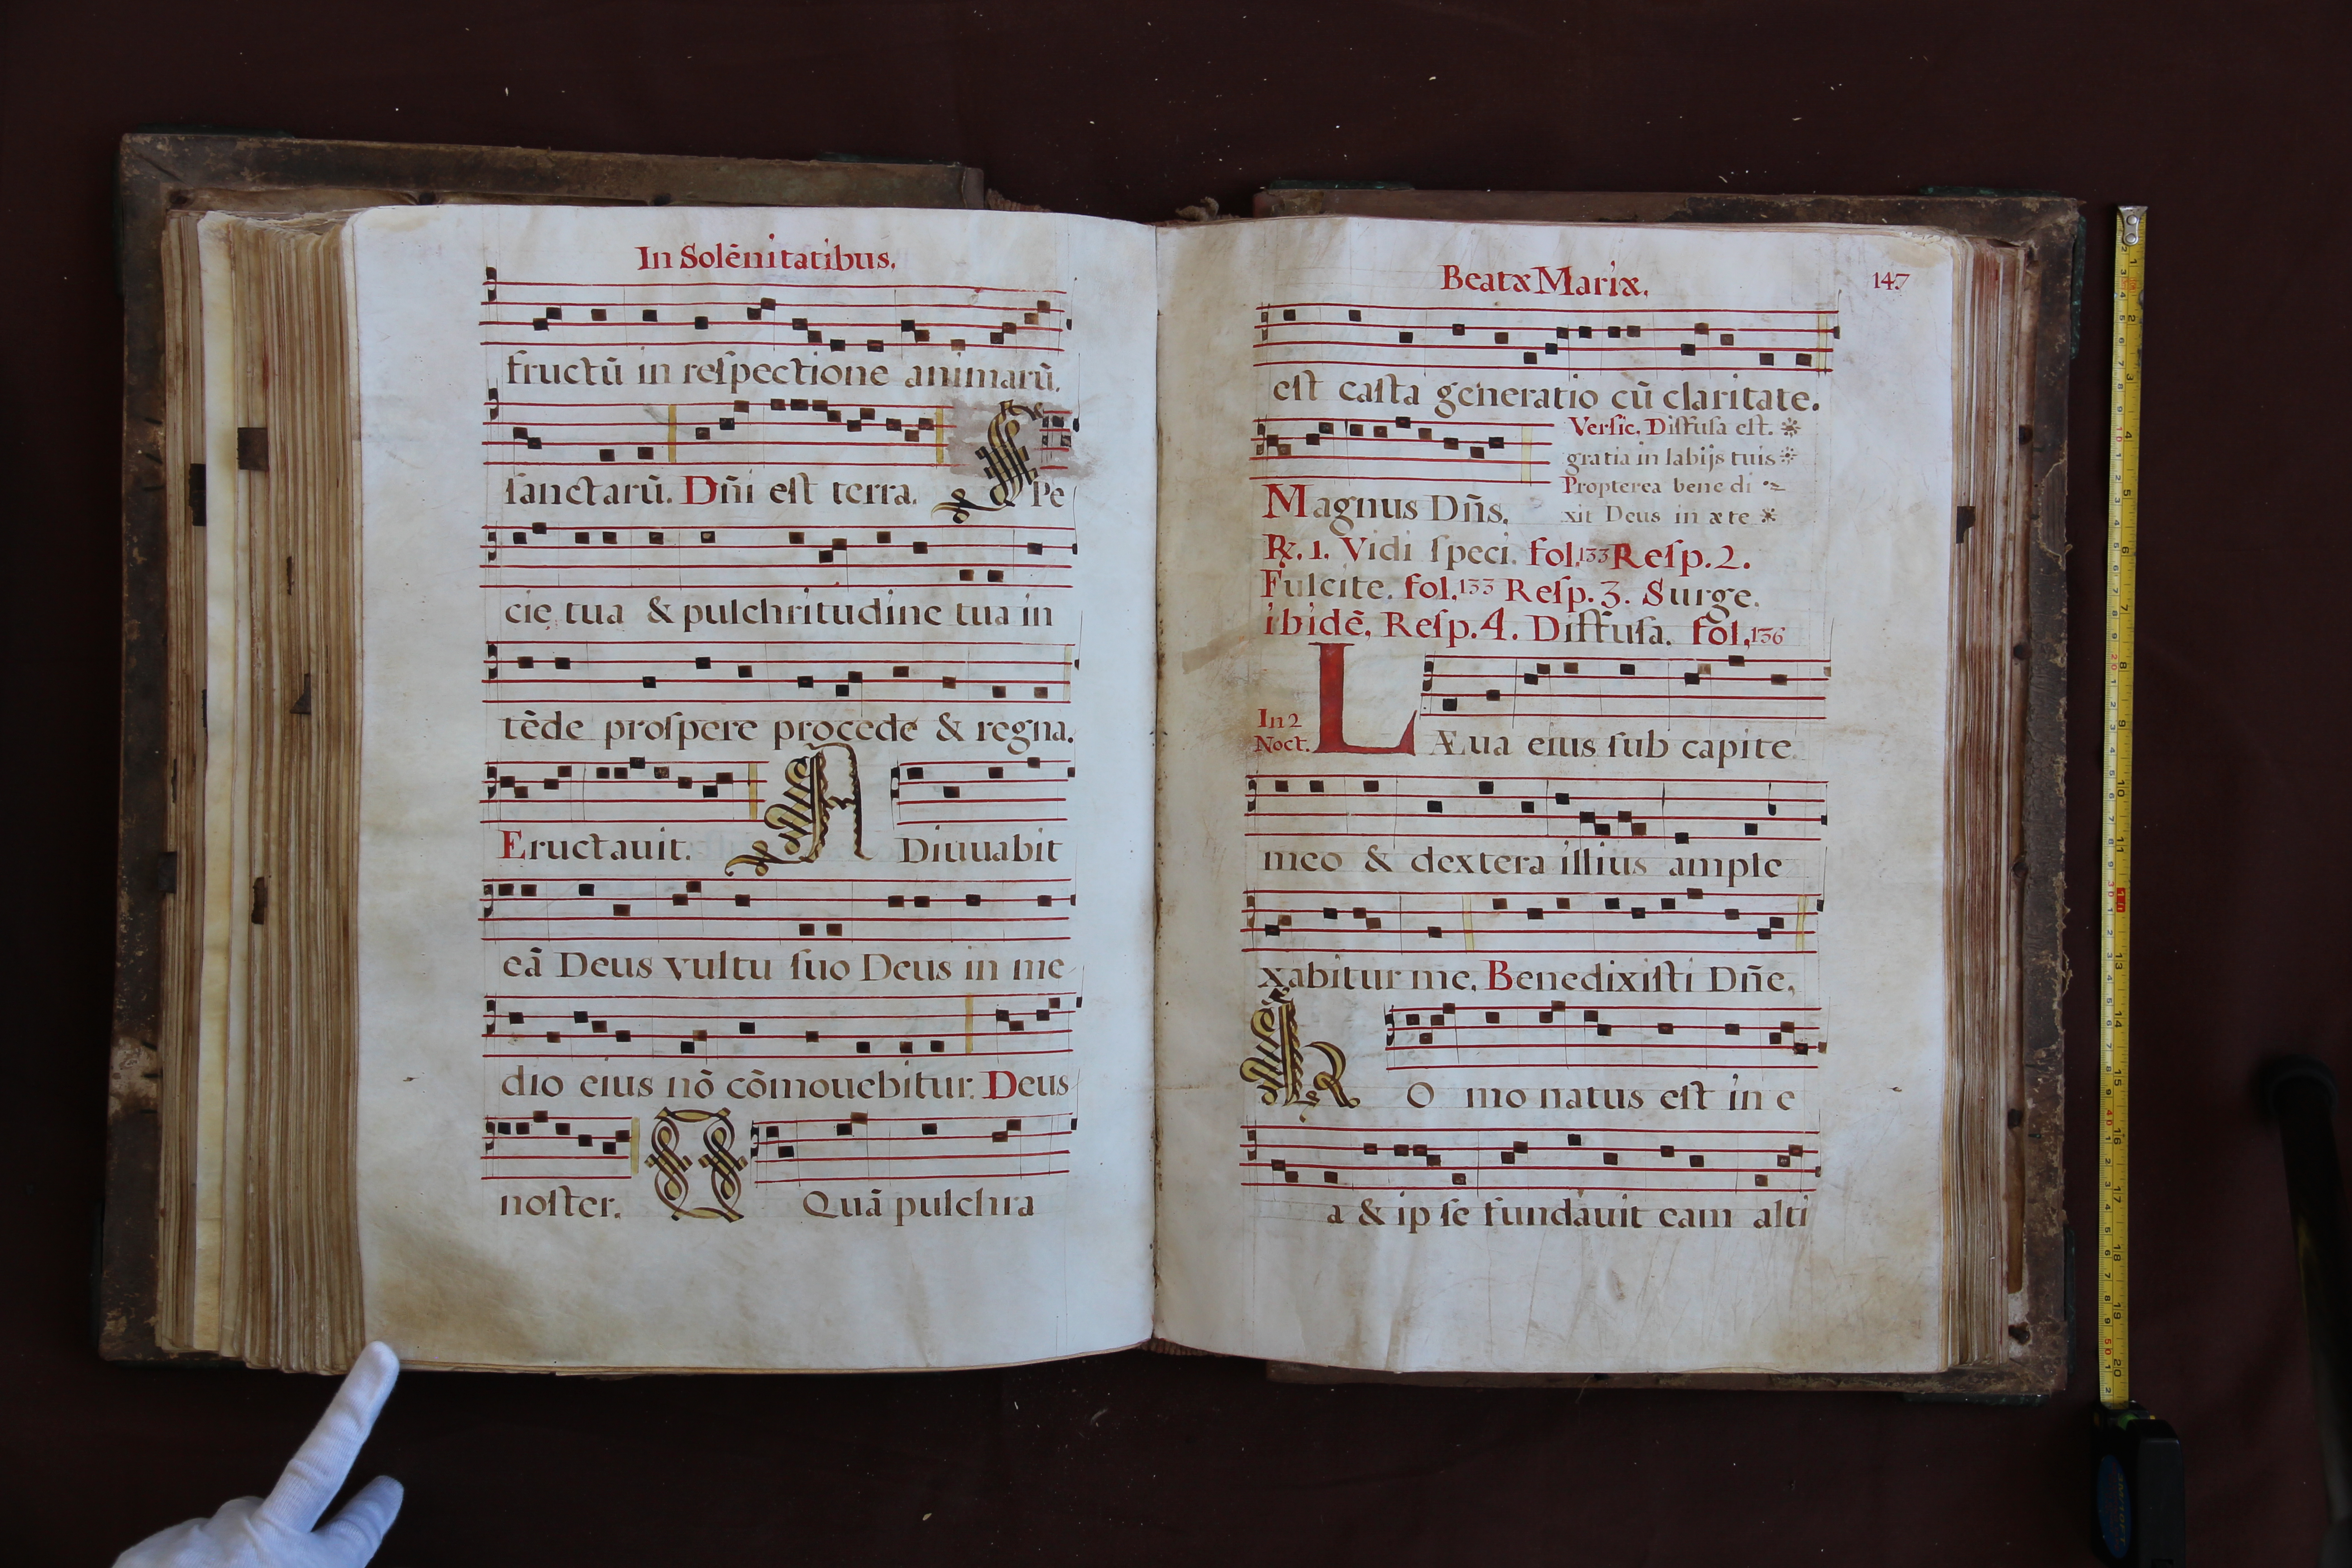 In Solēnitatibus.
fructū in reſpectione animarū.
ſanctarū. Dn̄i eſt terra. SPe
cie tua & pulchritudine tua in
tēde proſpere procede & regna.
Eructauit. ADiuuabit
eā Deus vultu ſuo Deus in me
dio eius nō cōmouebitur. Deus
noſter. Quā pulchra
Beatæ Mariæ. 147
eſt caſta generatio cū claritate.
Verſic. Diffuſa eſt.
gratia in labijs tuis
Propterea bene di
xit Deus in æte
Magnus Dn̄s.
℞. 1. Vidi ſpeci. fol. 133 Reſp. 2.
Fulcite. fol. 133 Reſp. 3. Surge.
ibidē, Reſp. 4. Diffuſa. fol. 136
In 2
Noct.
LÆua eius ſub capite
meo & dextera illius ample
xabitur me. Benedixiſti Dn̄e,
HO mo natus eſt in e
a & ip ſe fundauit eam alti